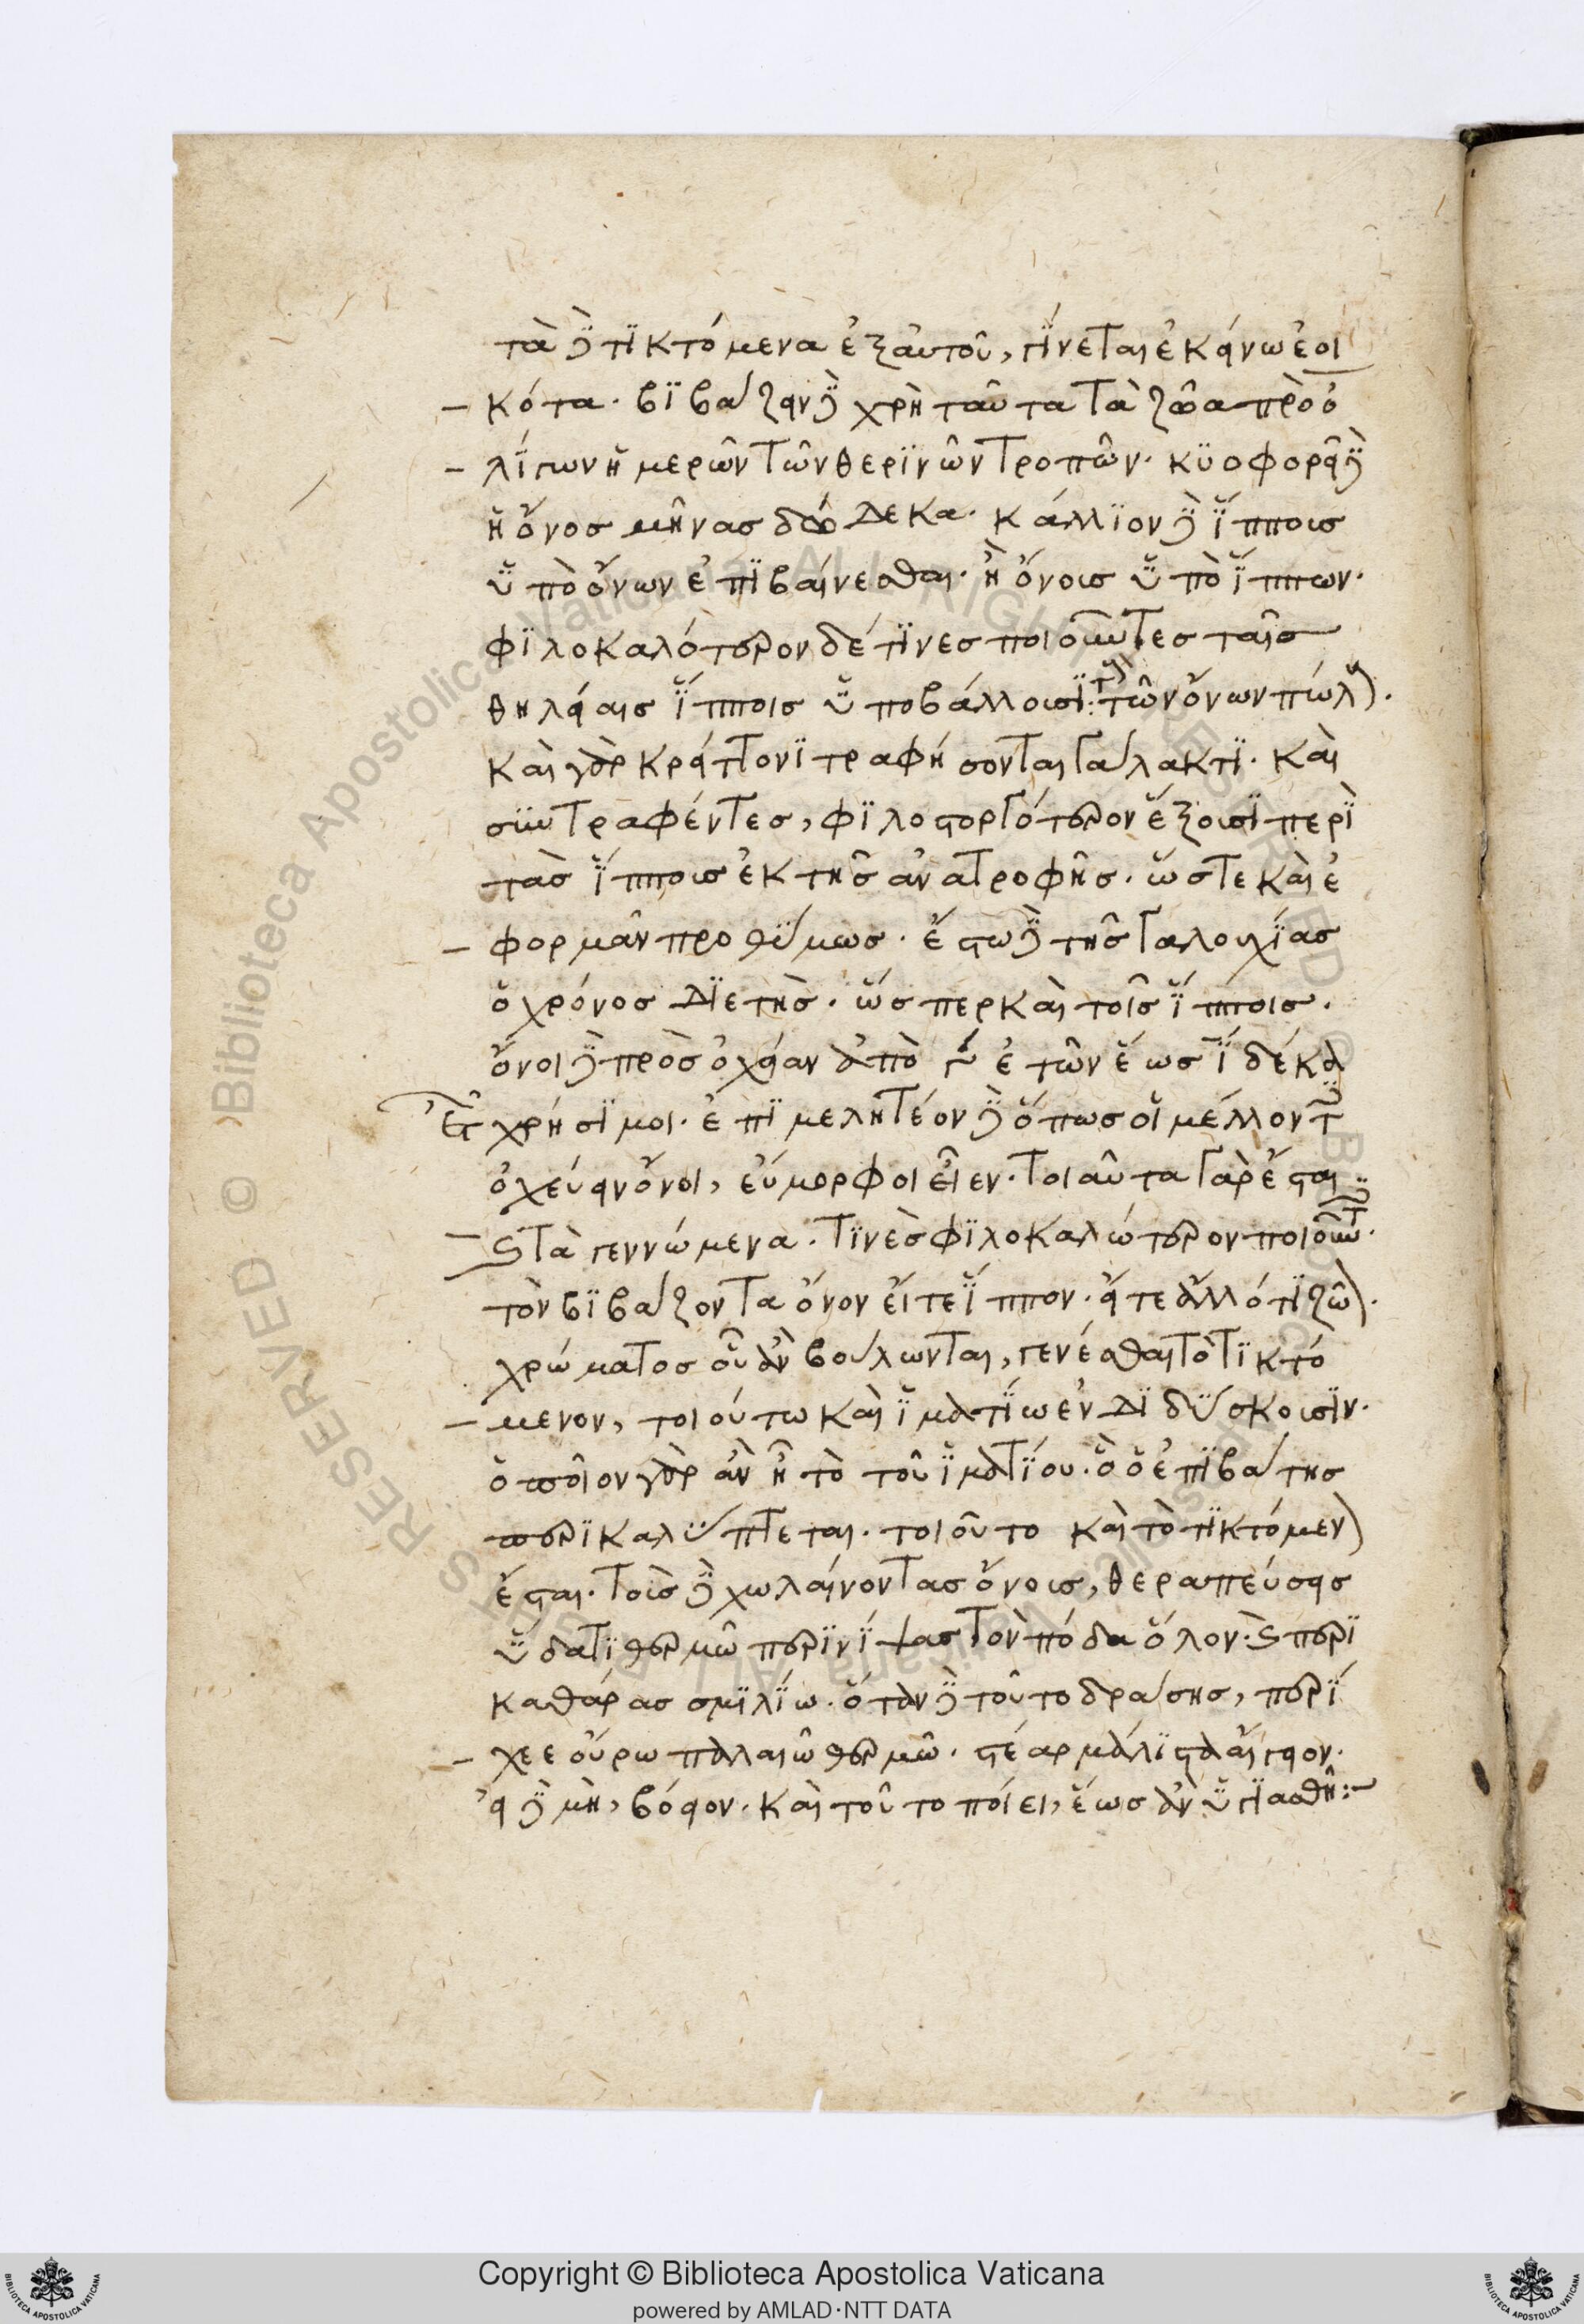 τὰ δὲ τικτόμενα ἐξ αὐτοῦ, γίνεται ἐκείνω ἐοι
κότα. βιβάζειν δὲ χρὴ ταῦτα τὰ ζῶα πρὸ ὀ
λίγων ἡμερῶν τῶν θερινῶν τροπῶν. κυοφορεῖ δὲ
ἡ ὄνος μῆνας δώδεκα. κάλλιον δὲ ἵππους
ὑπὸ ὄνων ἐπιβαίνεσθαι. ἢ ὄνους ὑπὸ ἵππων.
φιλοκαλότερον δέ τινες ποιοῦντες ταῖς
θηλείαις ἵπποις ὑποβάλλουσι τῶν ὄνων πώλ
καὶ γὰρ κρείττονι τραφήσονται γάλακτι. καὶ
συντραφέντες, φιλοστοργότερον ἕξουσι περὶ
τὰς ἵππους ἐκ τῆς ἀνατροφῆς. ὥστε καὶ ἐ
φορμᾶν προθύμως. ἔστω δὲ τῆς γαλουχίας
ὁ χρόνος διετὴς. ὥσπερ καὶ τοῖς ἵπποις.
ὄνοι δὲ πρὸς ὀχείαν ἀπὸ γ ἐτῶν ἕως ι δέκα
χρήσιμοι. ἐπιμελητέον δὲ ὅπως οἱ μέλλοντ
ὀχεύειν ὄνοι, εὔμορφοι εἶεν. τοιαῦτα γὰρ ἔσται
ϛ τὰ γεννώμενα. τινὲς φιλοκαλώτερον ποιοῦντ
τὸν βιβάζοντα ὄνον εἴτε ἵππον. εἴτε ἄλλό τι ζῶ
χρώματος οὗ ἂν βούλωνται, γενέσθαι τὸ τικτό
μενον, τοιούτω καὶ ἱματίω ἐνδιδύσκουσιν.
ὁποῖον γὰρ ἂν ἦ τὸ τοῦ ἱματίου. ὃ ὁ ἐπιβάτης
περικαλύπτεται. τοιοῦτο καὶ τὸ τικτόμεν
ἔσται. τοὺς δὲ χωλαίνοντας ὄνους, θεραπεύσεις
ὕδατι θερμῶ περινίψας τὸν πόδα ὅλον. ϛ περι
καθάρας σμιλίω. ὅταν δὲ τοῦτο δράσης, περί
χεε οὔρω παλαιῶ θερμῶ. στέαρ μάλιστα αἴγειον.
εἰ δὲ μὴ, βόειον. καὶ τοῦτο ποίει, ἕως ἂν ὑγιασθῆ:~
Copyright © Biblioteca Apostolica Vaticana
powered by AMLAD·NTT DATA